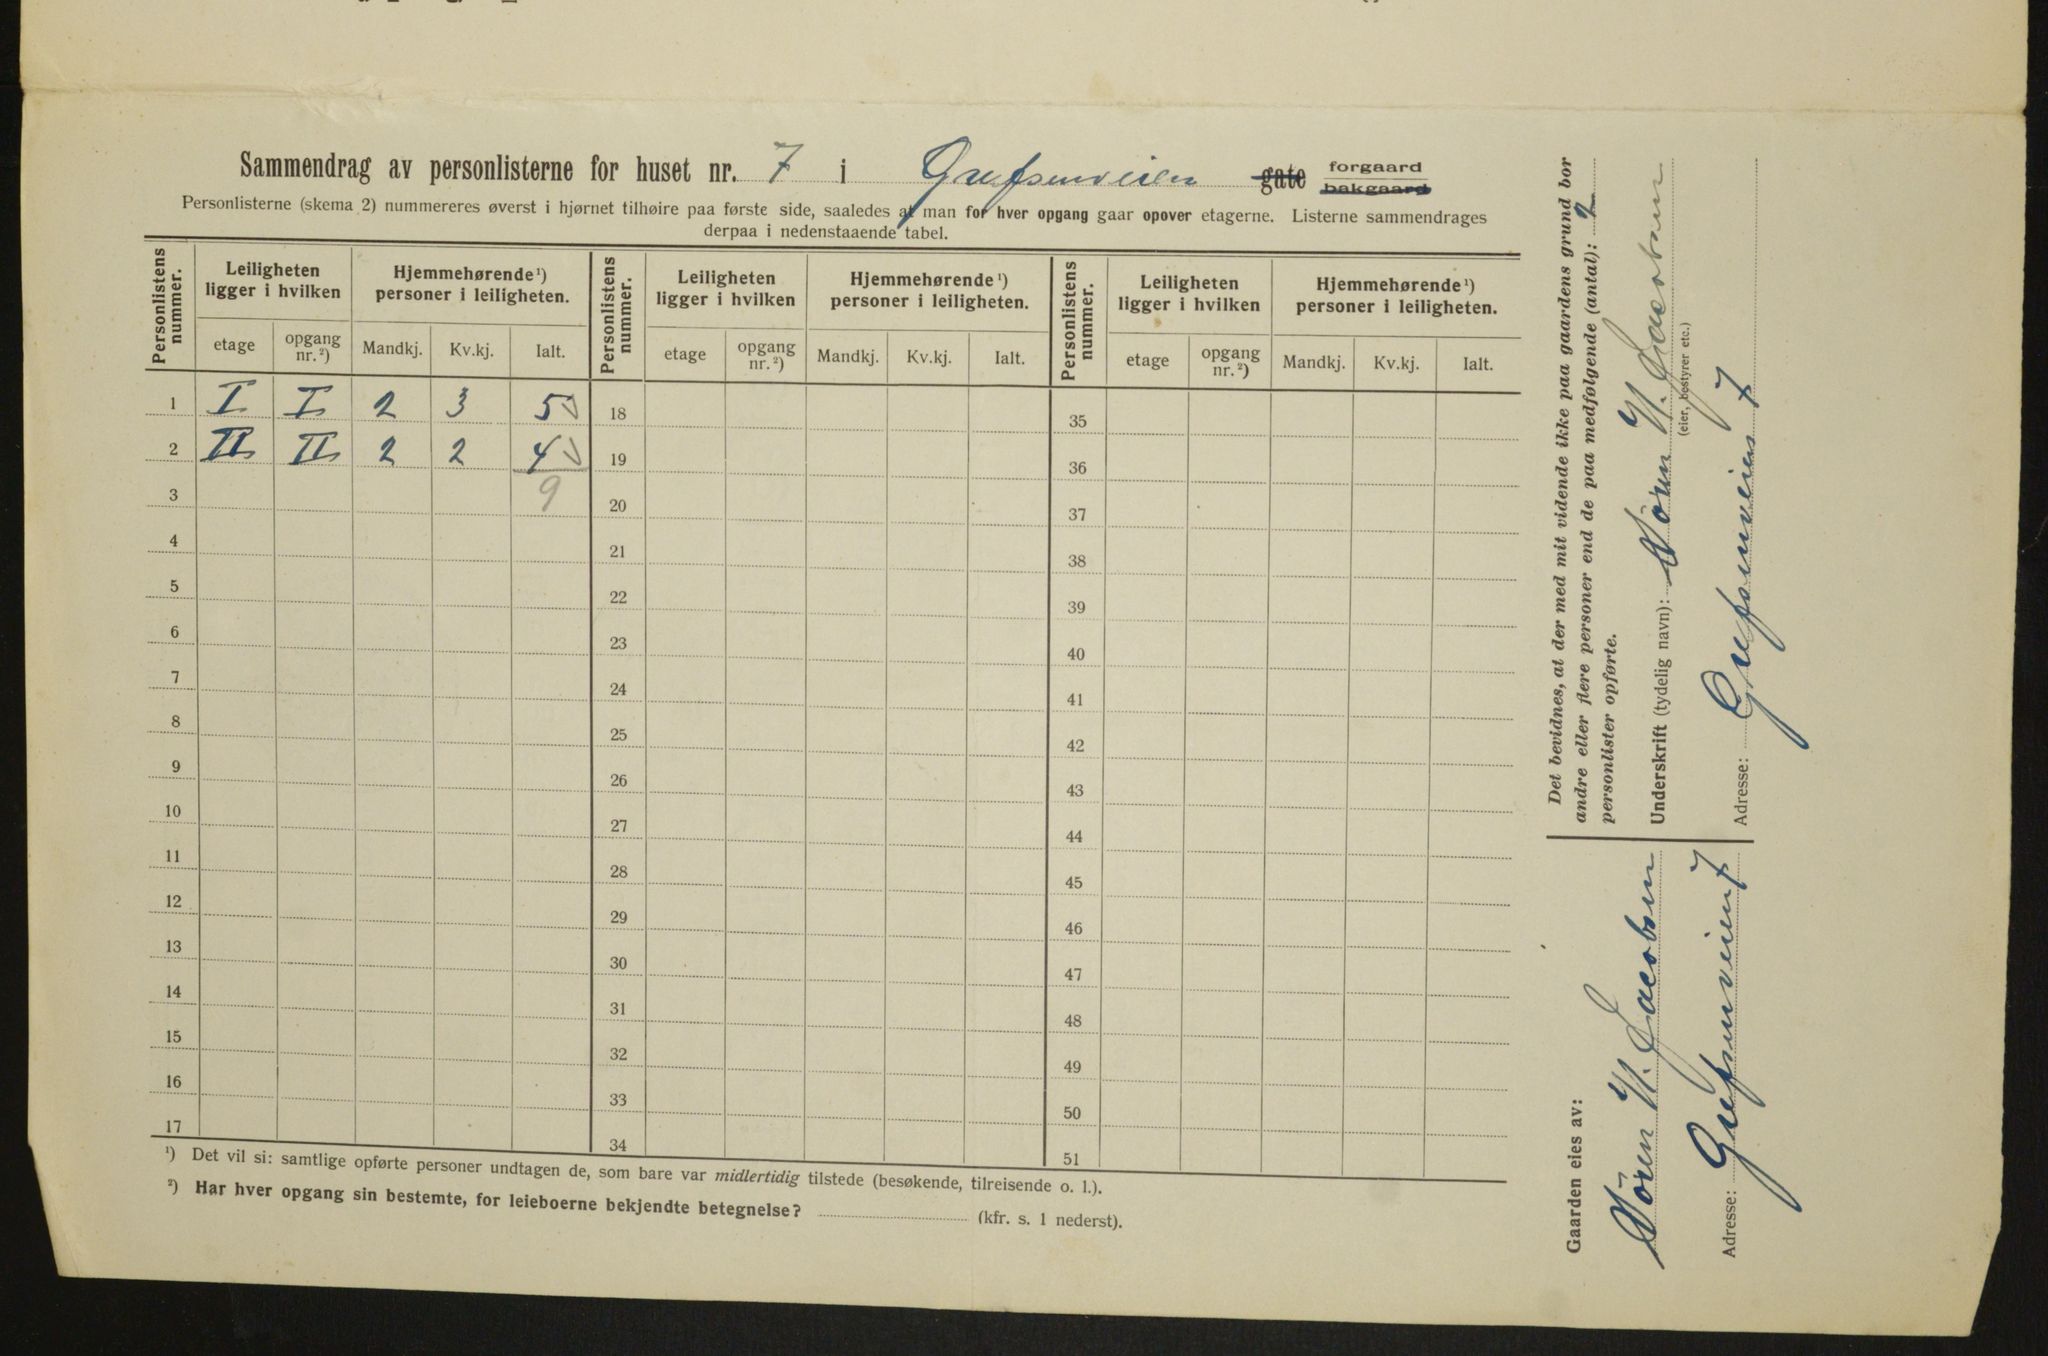 Sammendrag av personlisterne for huset nr. 7 i Grefsenveien gate forgaard bakgaard
Personlisterne (skema 2) nummereres øverst i hjørnet tilhøire paa første side, saaledes at man for hver opgang gaar opover etagerne. Listerne sammendrages
derpaa i nedenstaaende tabel.
Personlistens nummer. Leiligheten ligger i hvilken Hjemmehørende¹) personer i leiligheten. Personlistens nummer. Leiligheten ligger i hvilken Hjemmehørende¹) personer i leiligheten. Personlistens nummer. Leiligheten ligger i hvilken Hjemmehørende¹) personer i leiligheten.
etage opgang nr.²) Mandkj. Kv.kj. Ialt. etage opgang nr.²) Mandkj. Kv.kj. Ialt. etage opgang nr.²) Mandkj. Kv.kj. Ialt.
1 I I 2 3 5 18 35
2 II II 2 2 4 19 36
3 9 20 37
4 21 38
5 22 39
6 23 40
7 24 41
8 25 42
9 26 43
10 27 44
11 28 45
12 29 46
13 30 47
14 31 48
15 32 49
16 33 50
17 34 51
¹) Det vil si: samtlige opførte personer undtagen de, som bare var midlertidig tilstede (besøkende, tilreisende o. l.).
²) Har hver opgang sin bestemte, for leieboerne bekjendte betegnelse? (kfr. s. 1 nederst).
Det bevidnes, at der med mit vidende ikke paa gaardens grund bor
andre eller flere personer end de paa medfølgende (antal): 2
personlister opførte.
Underskrift (tydelig navn): Sören H. Jacobsen
(eier, bestyrer etc.)
Adresse: Grefsenveien 7
Gaarden eies av:
Sören H. Jacobsen
Adresse: Grefsenveien 7